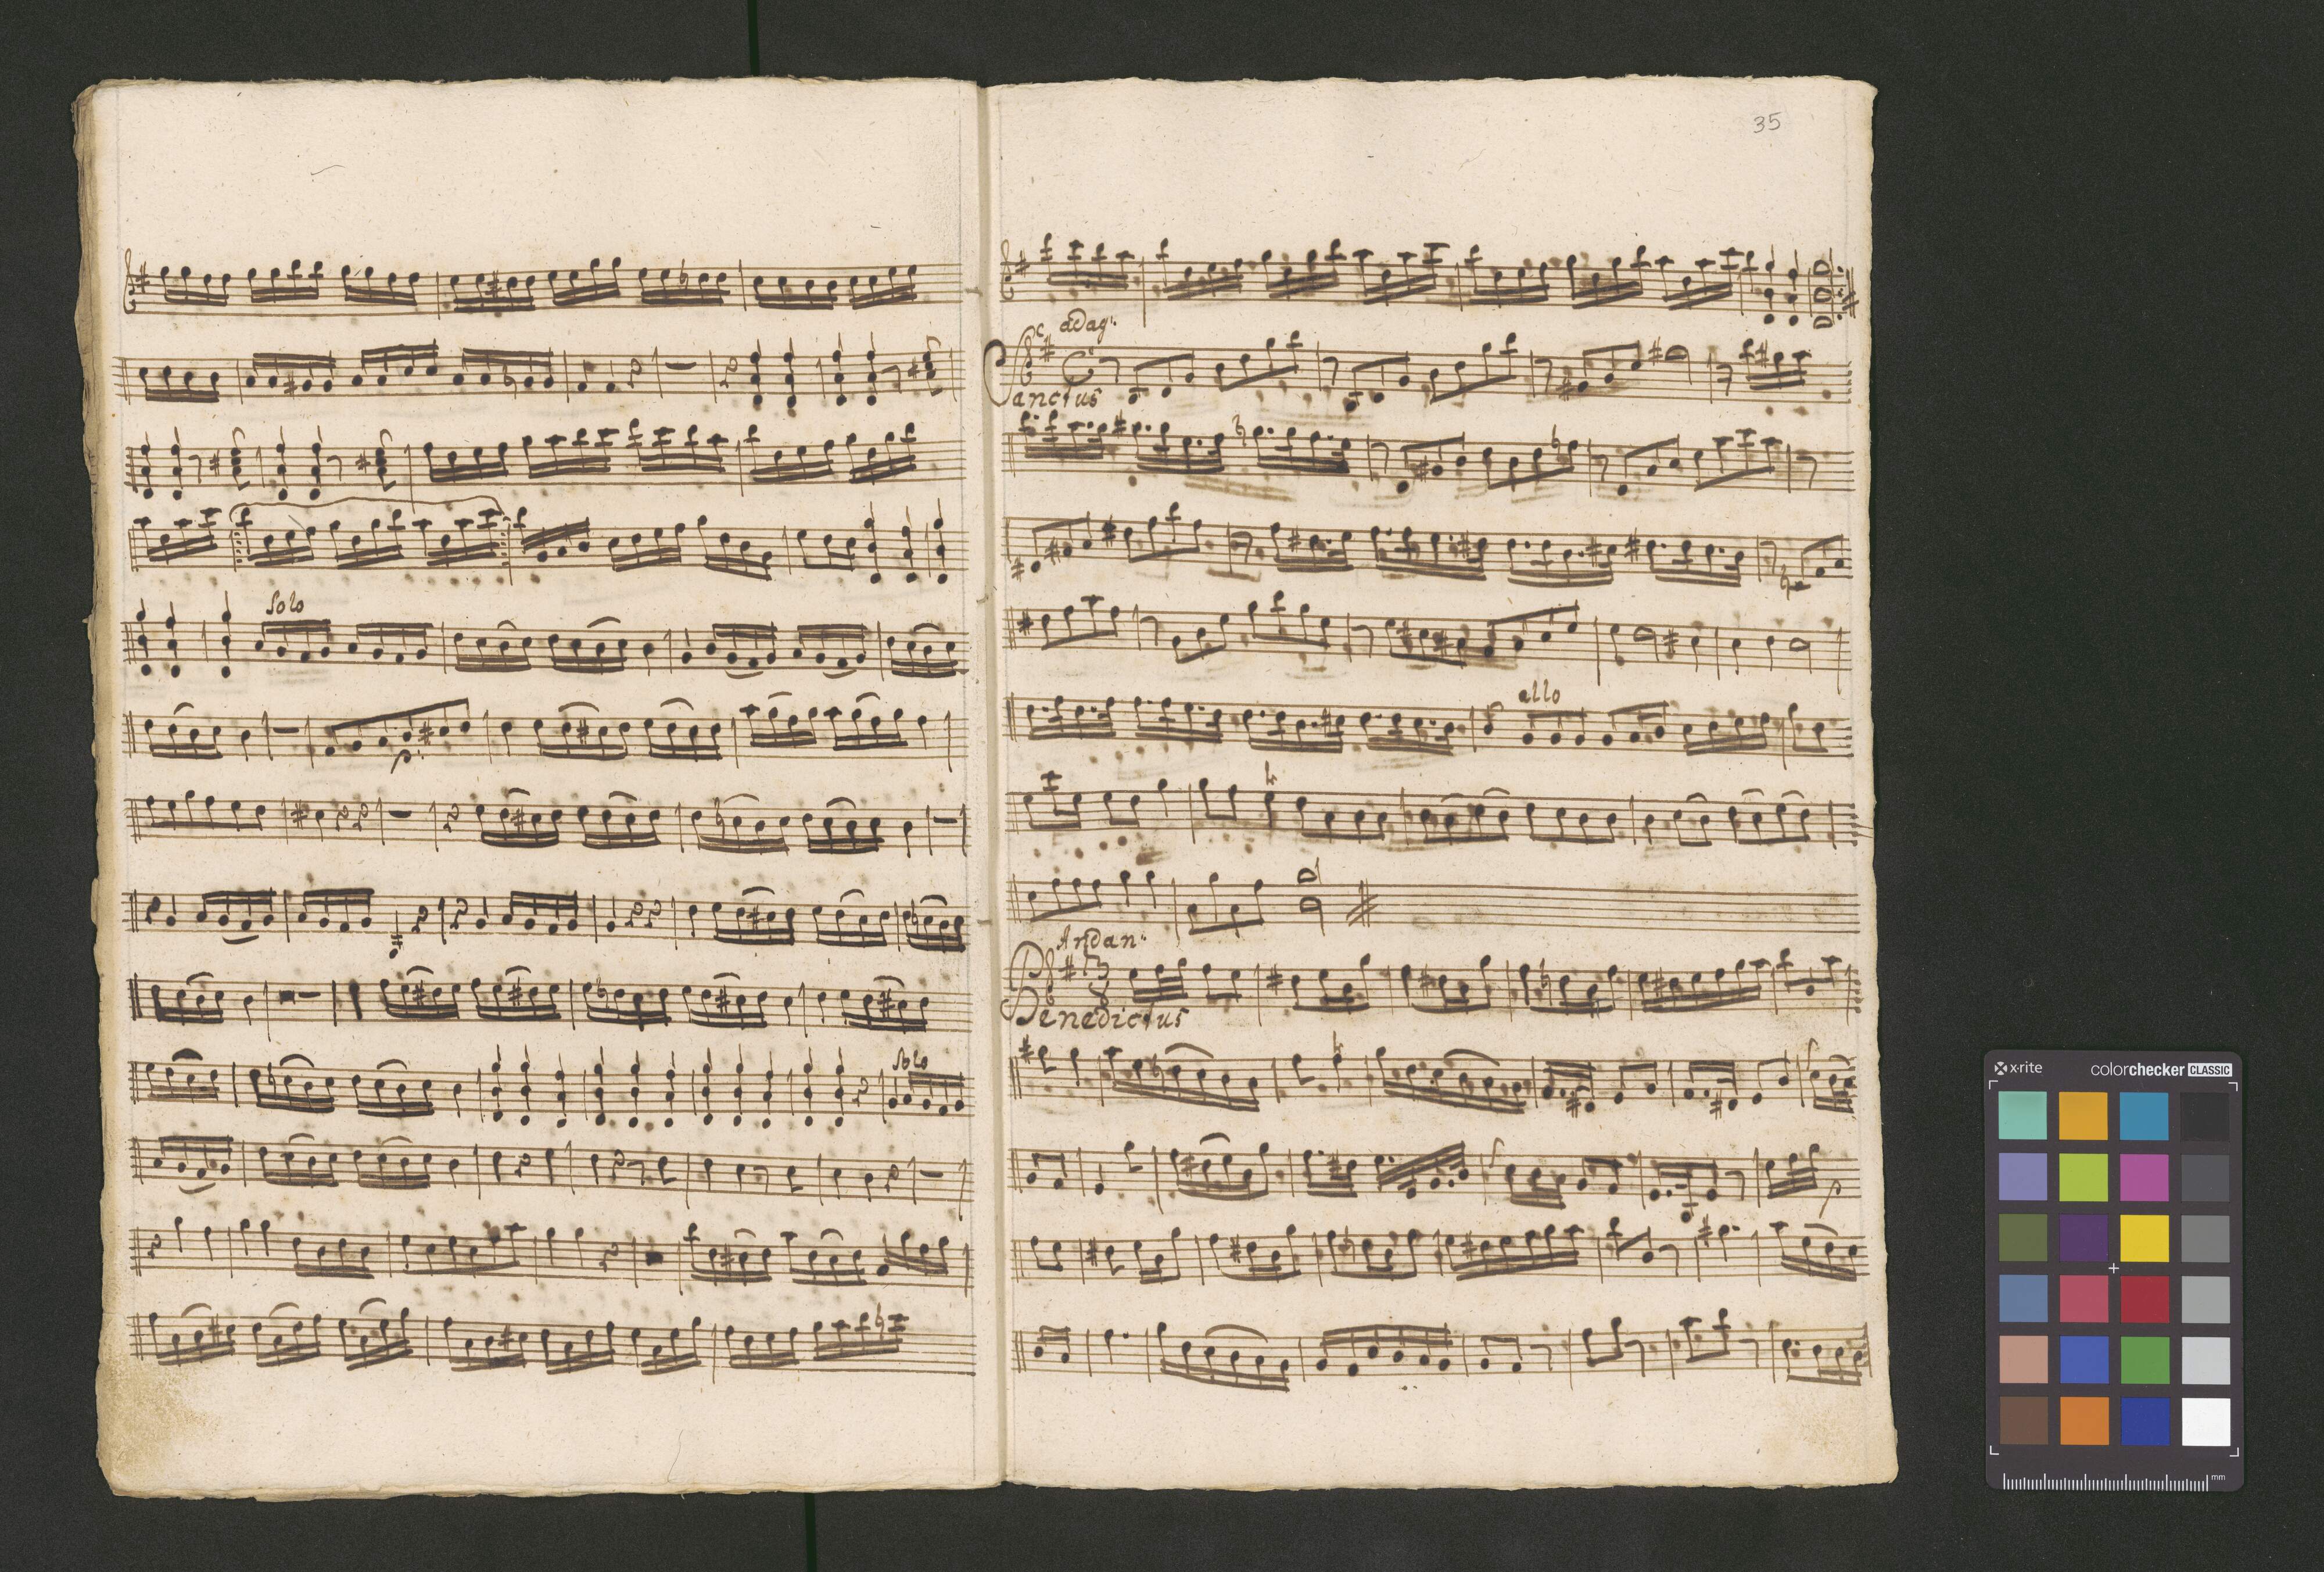 Solo
p:
Solo
35
adag:
Sanctus
allo
Andan:
3
8
Benedictus
p
x-rite
colorchecker CLASSIC
mm